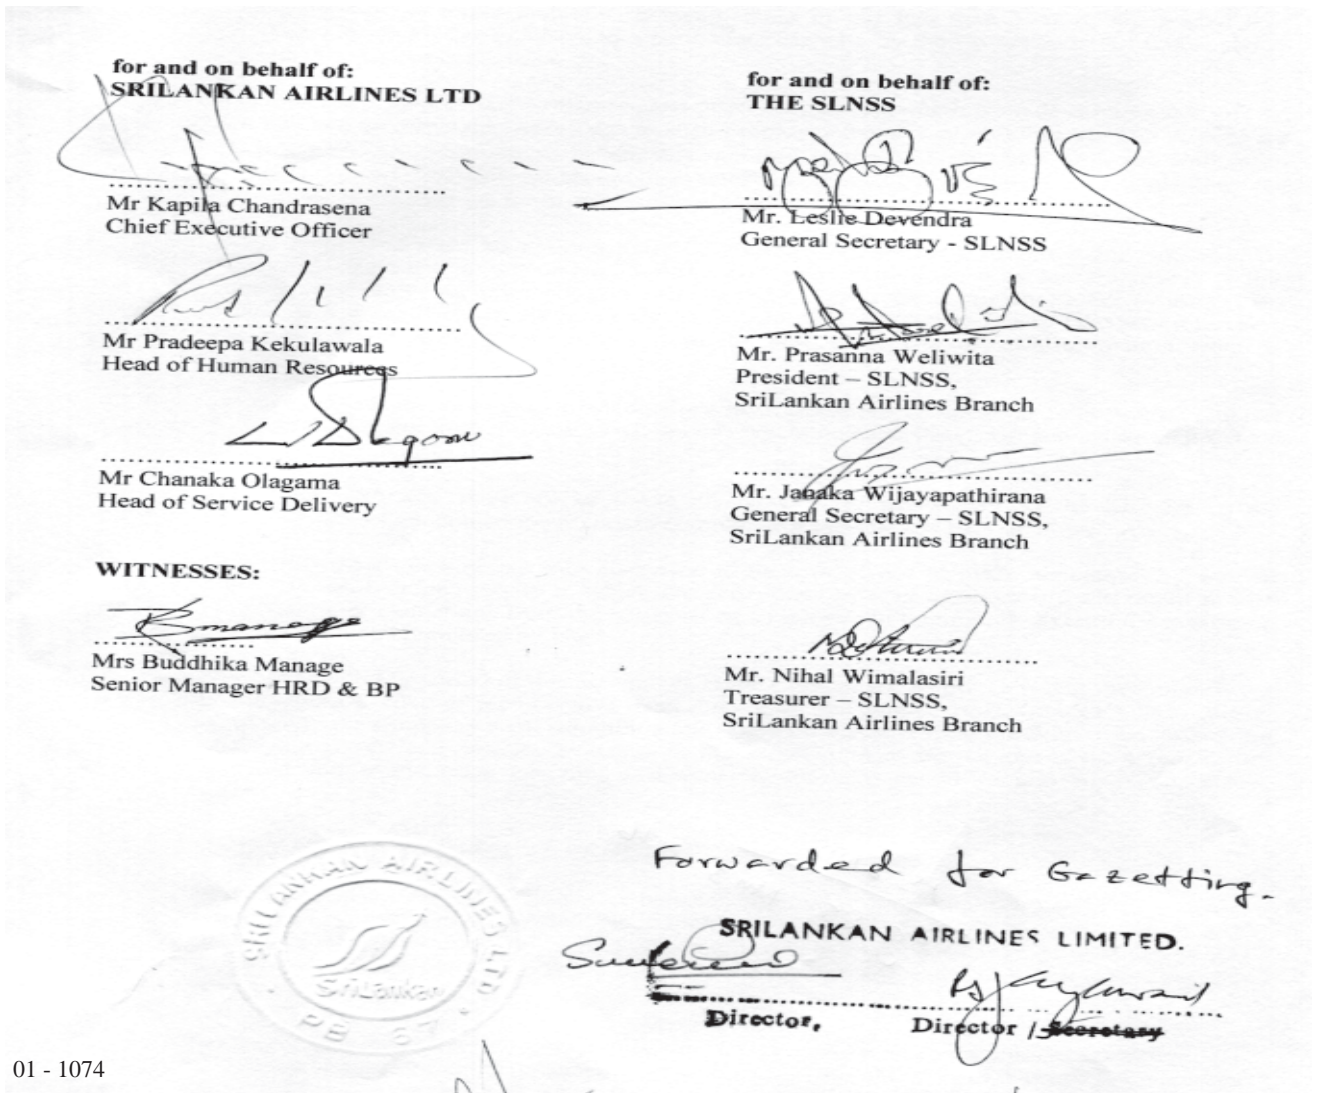 for and on behalf of:
SRILANKAN AIRLINES LTD
Mr Kapila Chandrasena
Chief Executive Officer
Mr Pradeepa Kekulawala
Head of Human Resources
Mr Chanaka Olagama
Head of Service Delivery
WITNESSES:
Bmanage
Mrs Buddhika Manage
Senior Manager HRD & BP
for and on behalf of:
THE SLNSS
Mr. Leslie Devendra
General Secretary - SLNSS
Mr. Prasanna Weliwita
President – SLNSS,
SriLankan Airlines Branch
Mr. Janaka Wijayapathirana
General Secretary – SLNSS,
SriLankan Airlines Branch
Mr. Nihal Wimalasiri
Treasurer – SLNSS,
SriLankan Airlines Branch
SRILANKAN AIRLINES LTD
SriLankan
PB 67
Forwarded for Gazetting.
SRILANKAN AIRLINES LIMITED.
Director,
Director / Secretary
01 - 1074